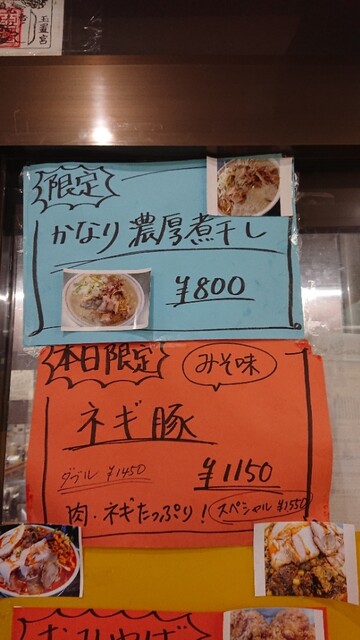 玉置宮
限定
かなり濃厚煮干し
¥800
本日限定
みそ味
ネギ豚
ダブル ¥1450
¥1150
肉・ネギたっぷり！
スペシャル ¥1550